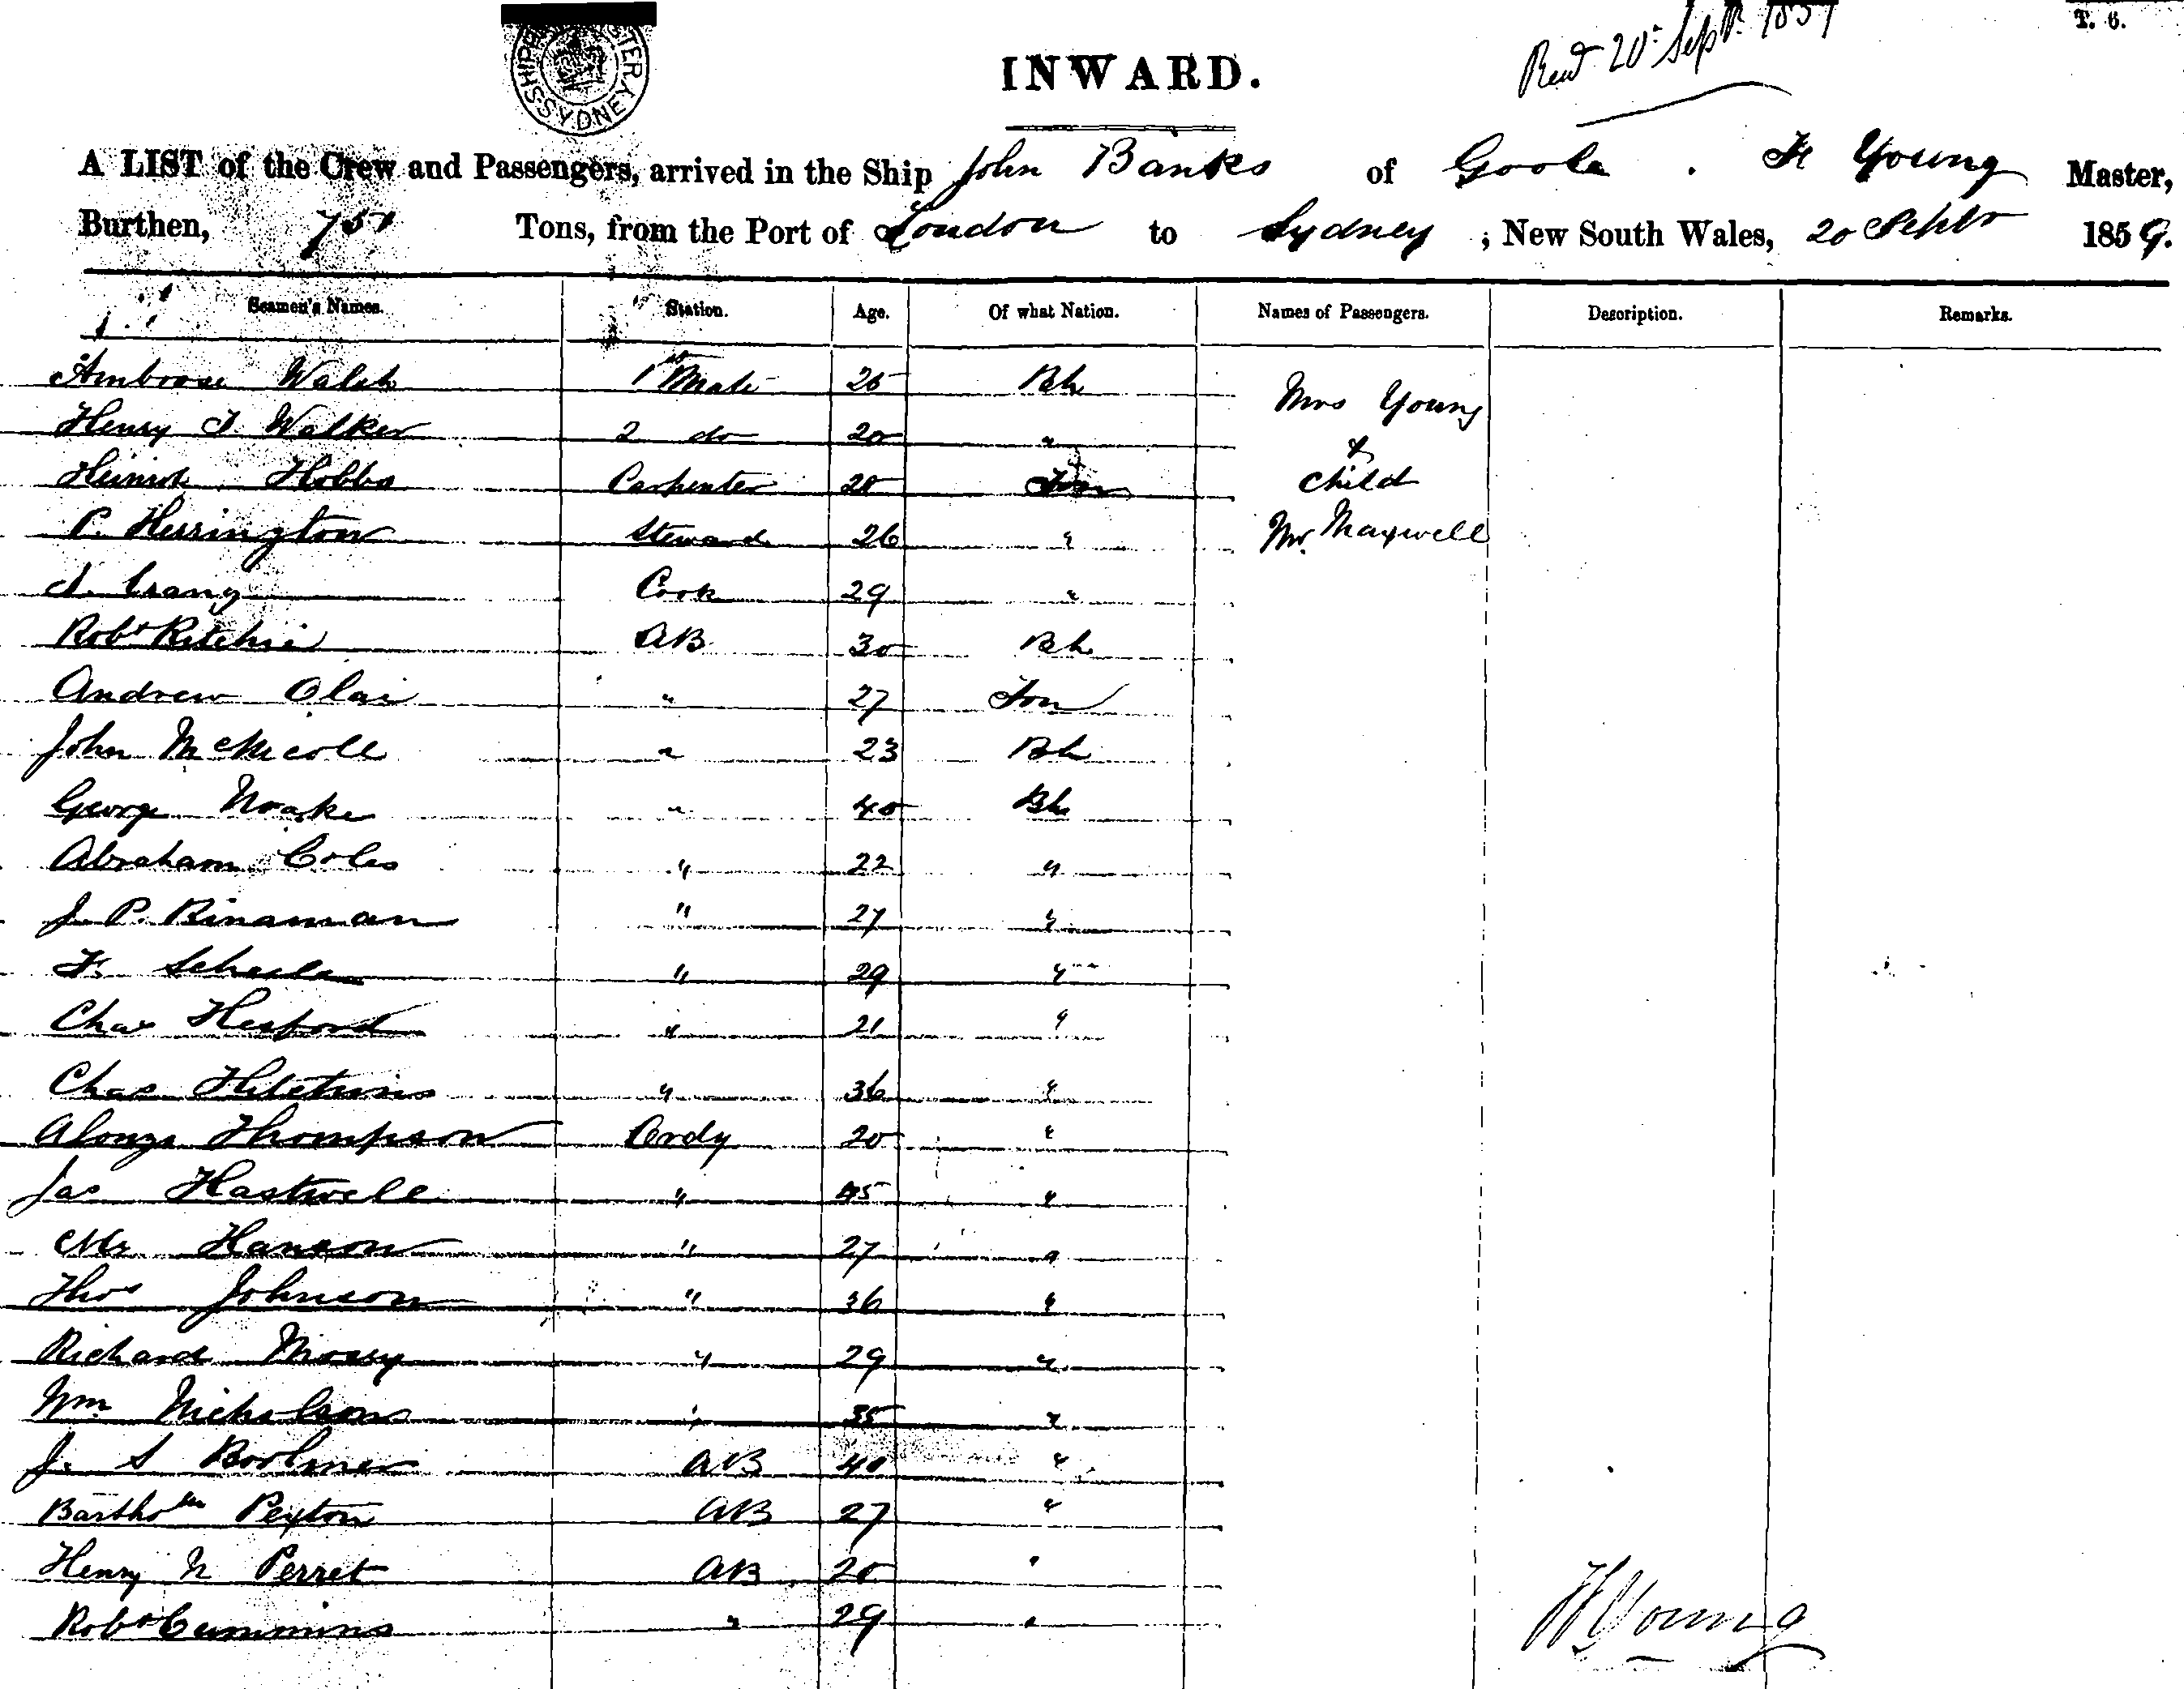 T. 6.
Recd 20th Septr. 1859
SYDNEY
INWARD.
A LIST of the Crew and Passengers, arrived in the Ship John Banks of Goole . H Young Master,
Burthen, 751 Tons, from the Port of London to Sydney ; New South Wales, 20 Septbr 1859.
Seamen's Names. Station. Age. Of what Nation. Names of Passengers. Description. Remarks.
Ambrose Walsh 1st Mate 25 Bh Mrs Young
Henry J. Walker 2 do 20 " &
Hobbs Carpenter 20 Fon Child
P. Herrington Steward 26 " Mr. Maxwell
Crany Cook 29 "
Robt Ritchie AB 30 Bh
Andrew Olai " 27 Fon
John McNicoll " 23 Bh
George Noake " 40 Bh
Abraham Coles " 22 "
J. P. Rinaman " 27 "
F. Scheele " 29 "
Chas Hesford " 21 "
Chas " 36 "
Alonzo Thompson Ordy 20 "
Jas Hastwell " 45 "
Hanson " 27 "
Thos Johnson " 36 "
Richard Morey " 29 "
Wm Nicholson " 35 "
J. S AB 40 "
Barthow Peyton AB 27 "
Henry N Perret AB 20 "
Robt Cummins " 29 "
H Young